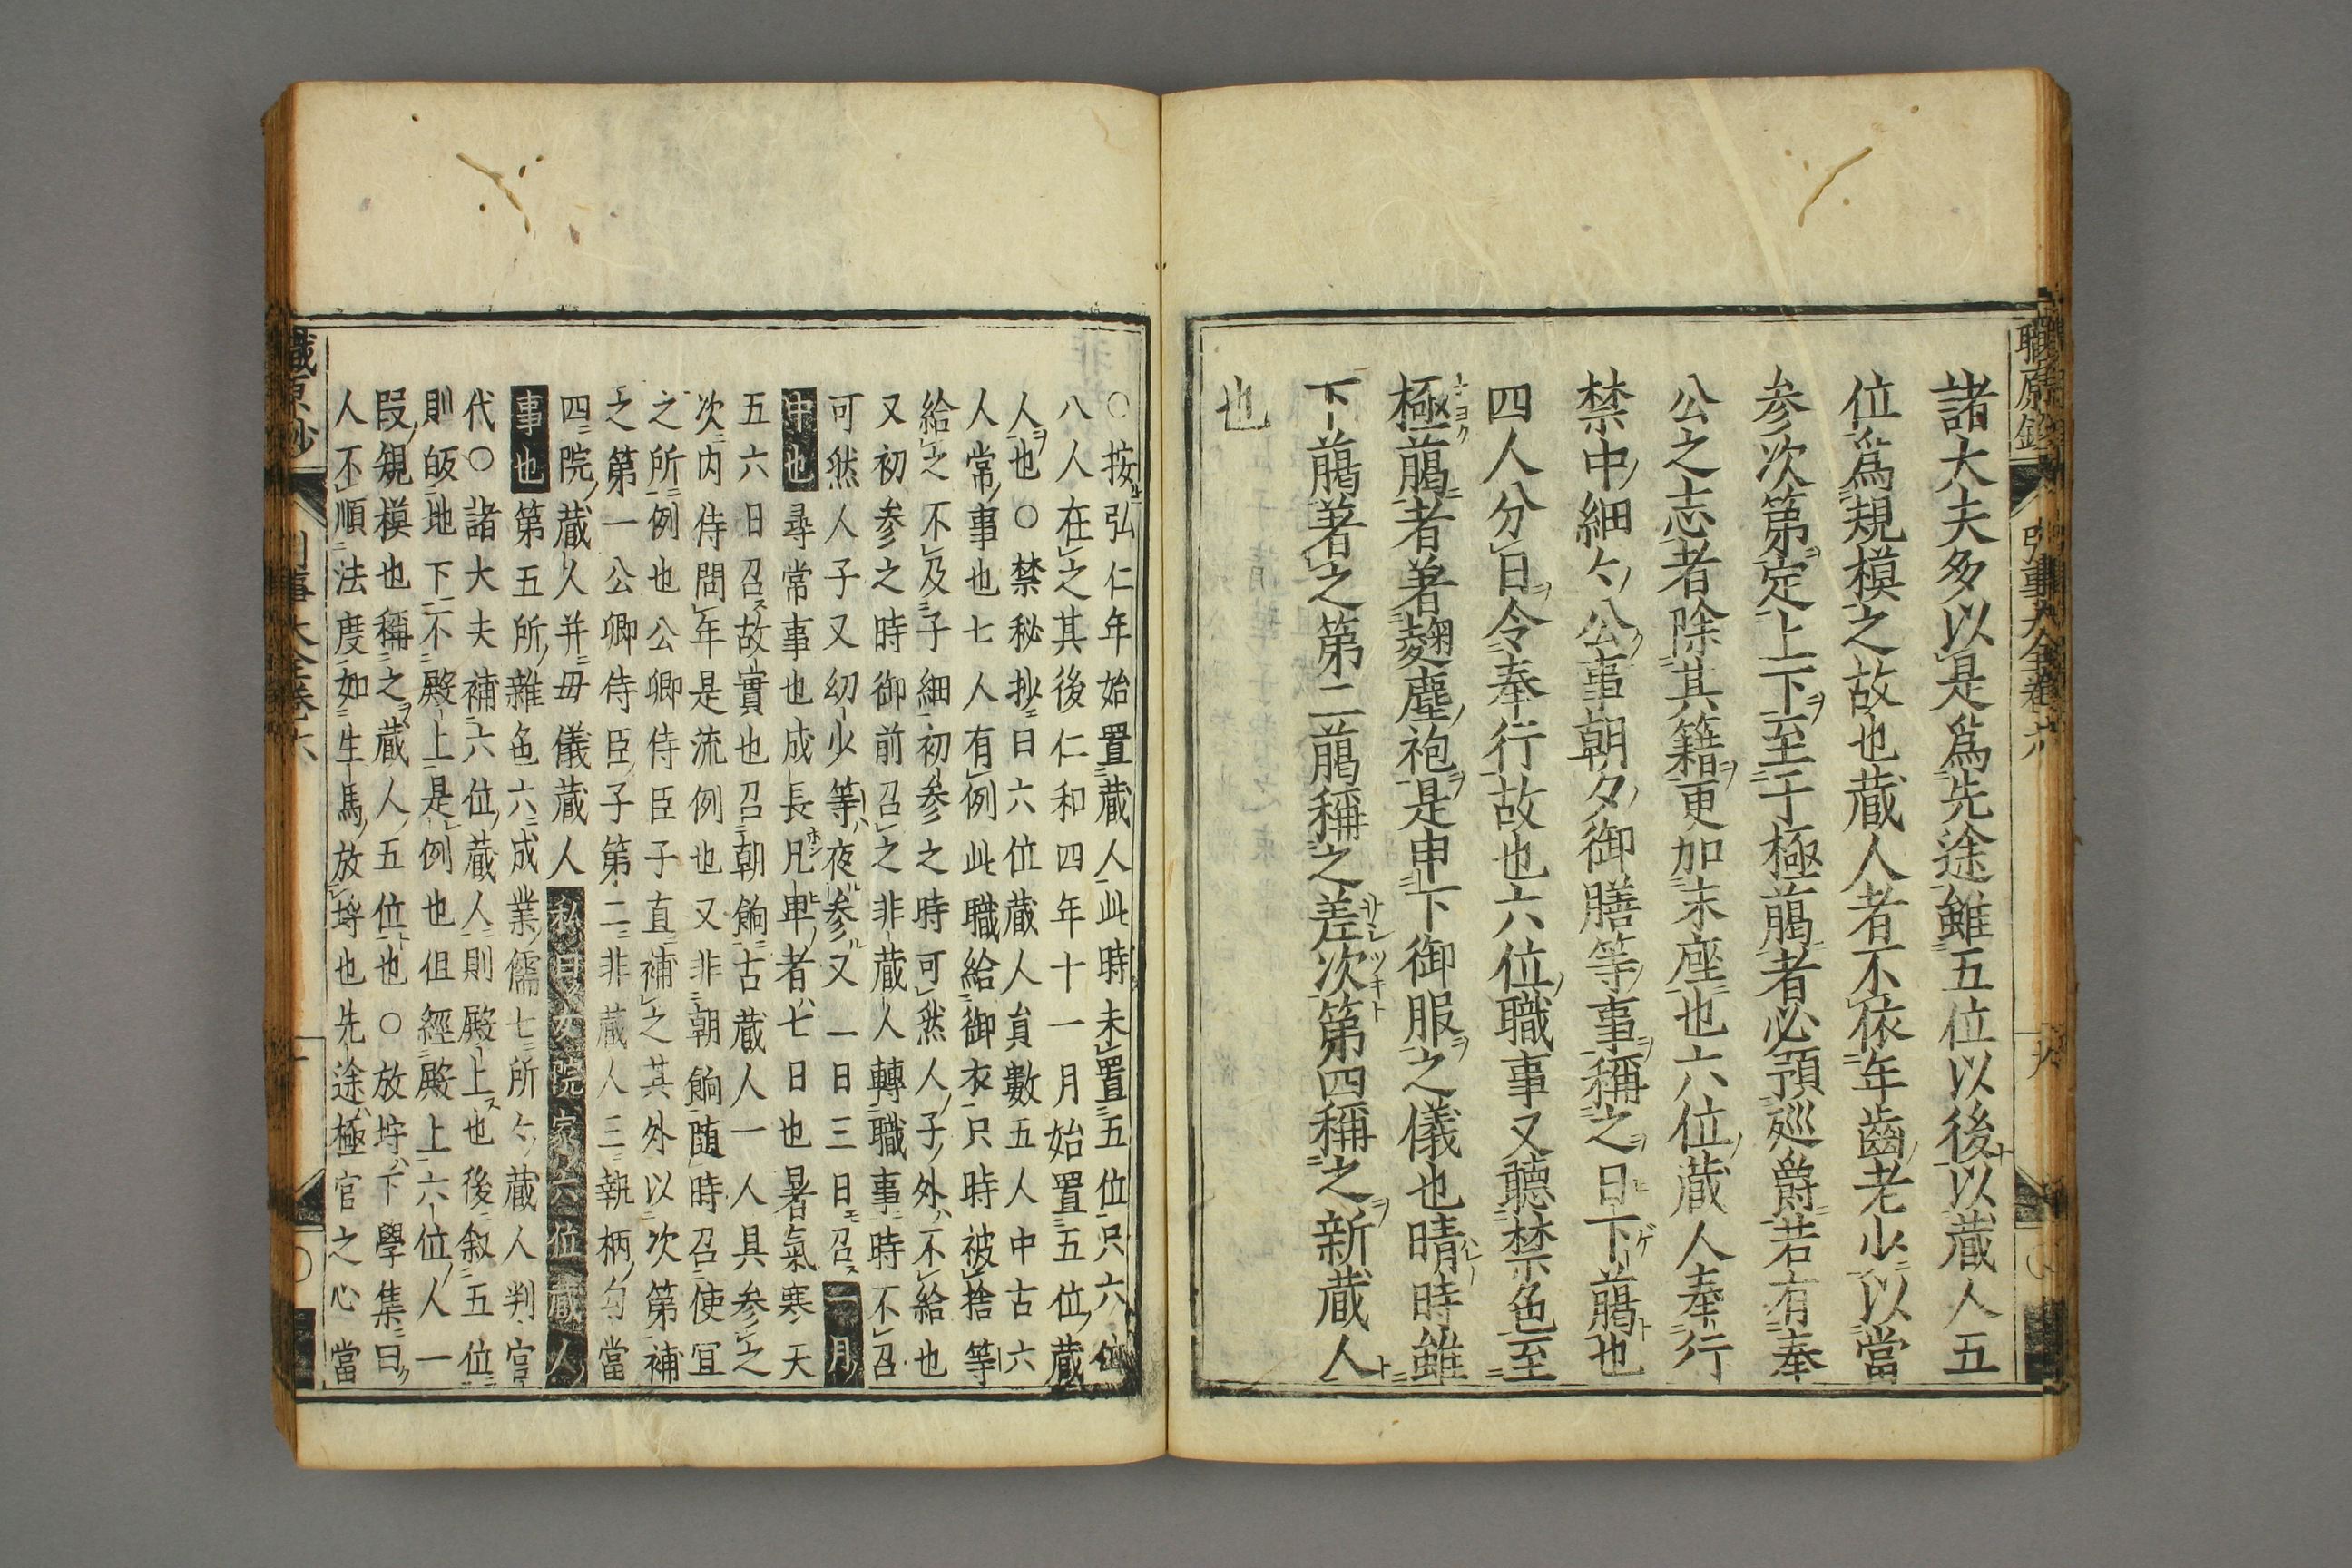 諸大夫多以是爲先途雖五位以後以蔵人五
位爲規模之故也蔵人者不依年齒老少以當
参次第定上下至于極﨟者必預廵爵若有奉
公之志者除其籍更加末座也六位蔵人奉行
禁中細々公事朝夕御膳等事稱之日下﨟也
四人分日令奉行故也六位職事又聽禁色至
極﨟者著麹塵袍是申下御服之儀也晴時雖
下﨟著之第二﨟稱之差次第四稱之新蔵人
也
○按弘仁年始置蔵人此時未置五位只六位
八人在之其後仁和四年十一月始置五位蔵
人也○禁秘抄曰六位蔵人負數五人中古六
人常事也七人有例此職給御衣只時被捨等
給之不及子細初参之時可然人子外不給也
又初参之時御前召之非蔵人轉職事時不召
可然人子又幼少等夜参又一日三日召一月
中也尋常事也成長凡卑者七日也暑氣寒天
五六日召故實也召朝餉古蔵人一人具参之
次内侍問年是流例也又非朝餉随時召使冝
之所例也公卿侍臣子直補之其外以次第補
之第一公卿侍臣子第二非蔵人三執柄勾當
四院蔵人并毋儀蔵人私曰女院家六位蔵人
事也第五所雜色六成業儒七所々蔵人判官
代○諸大夫補六位蔵人則殿上也後叙五位
則皈地下不殿上是例也但經殿上六位人一
段規模也稱之蔵人五位也○放埒下學集曰
人不順法度如生馬放埒也先途極官之心當